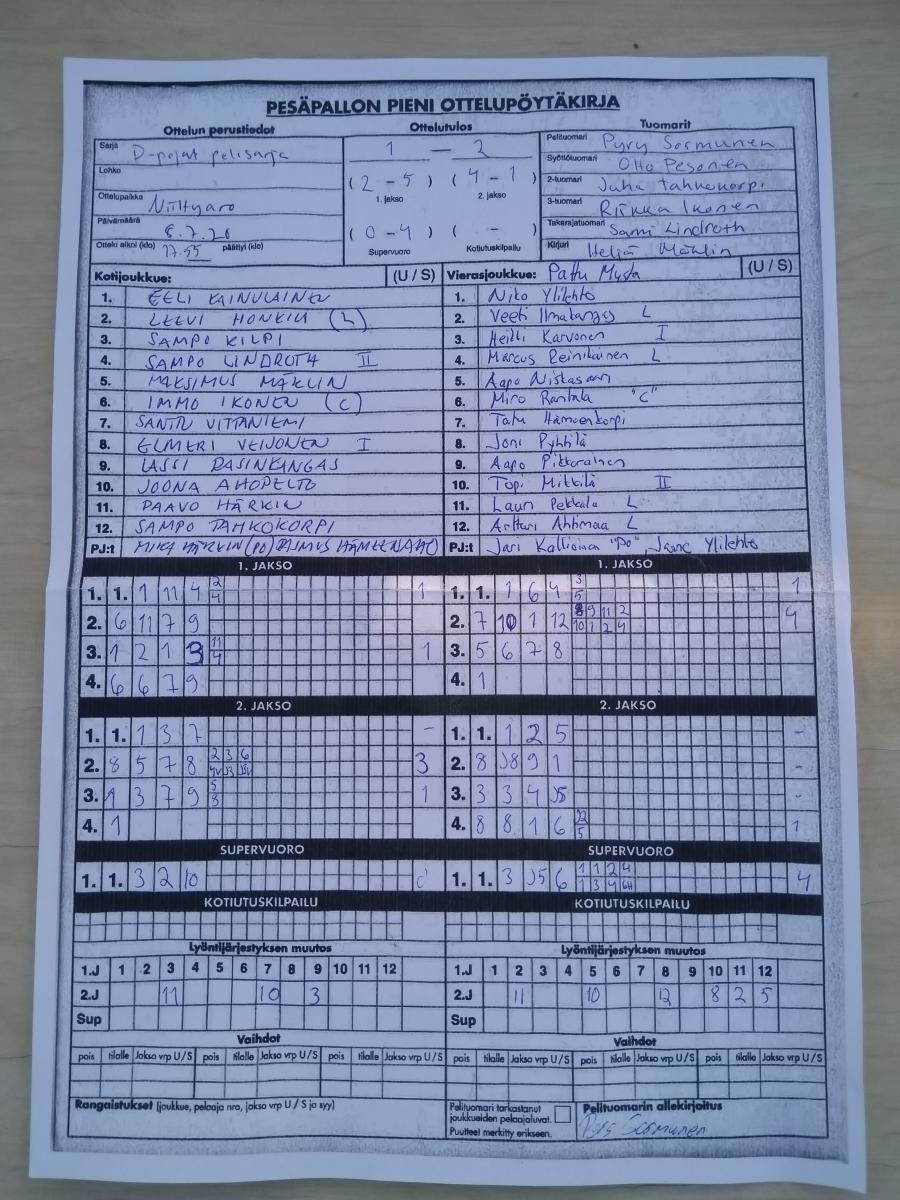 PESÄPALLON PIENI OTTELUPÖYTÄKIRJA
Ottelun perustiedot Ottelutulos Tuomarit
Sarja D-pojat pelisarja 1 — 2 Pelituomari Pyry Sormunen
Lohko Syöttötuomari Otto Pesonen
(2 - 5) (4 - 1) 2-tuomari Juha Tahkokorpi
1. jakso 2. jakso
Ottelupaikka Niittyaro 3-tuomari Riikka Ikonen
Päivämäärä 8.7.20 (0 - 4) ( - ) Takarajatuomari Sami Lindroth
Ottelu alkoi (klo) 17.55 päättyi (klo) Supervuoro Kotiutuskilpailu Kirjuri Heljä Mählin
Kotijoukkue: (U / S) Vierasjoukkue: Pattu Musta (U / S)
1. EELI KAINULAINEN 1. Niko Ylilehto
2. LEEVI HONKIN (L) 2. Veeti L
3. SAMPO KILPI 3. Heikki Karvonen I
4. SAMPO LINDROTH II 4. Marcus Reinikainen L
5. MAKSIMUS MÄHLIN 5. Aapo Niskasaari
6. IMMO IKONEN (C) 6. Miro Rantala "C"
7. SANTTU VITTANIEMI 7. Tatu Hämeenkorpi
8. ELMERI VEIJONEN I 8. Joni Pyhtilä
9. LASSI PASINKANGAS 9. Aapo Pikkarainen
10. JOONA AHOPELTO 10. Topi Mikkilä II
11. PAAVO HÄRKIN 11. Lauri Pekkala L
12. SAMPO TAHKOKORPI 12. Artturi Ahhmaa L
PJ:t MIKA HÄRKIN (PO) RASMUS HÄMEENAHO PJ:t Jari Kallioinen "Po", Janne Ylilehto
1. JAKSO 1. JAKSO
1. 1. 1 11 4 2 4 1 1. 1. 1 6 4 3 5 1
2. 6 11 7 9 2. 7 10 1 12 8 9 11 2 10 1 2 4 4
3. 1 2 1 3 11 4 1 3. 5 6 7 8
4. 6 6 7 9 4. 1
2. JAKSO 2. JAKSO
1. 1. 1 3 7 - 1. 1. 1 2 5 -
2. 8 5 7 8 2 3 6 4v J3 J5v 3 2. 8 J8 9 1 -
3. 1 3 7 9 5 8 1 3. 3 3 4 J5 -
4. 1 4. 8 8 1 6 5 1
SUPERVUORO SUPERVUORO
1. 1. 3 2 10 1. 1. 3 J5 6 1 1 2 4 1 3 4 6H 4
KOTIUTUSKILPAILU KOTIUTUSKILPAILU
Lyöntijärjestyksen muutos Lyöntijärjestyksen muutos
1.J 1 2 3 4 5 6 7 8 9 10 11 12 1.J 1 2 3 4 5 6 7 8 9 10 11 12
2.J 11 10 3 2.J 11 10 12 8 2 5
Sup Sup
Vaihdot Vaihdot
pois tilalle Jakso vrp U/S pois tilalle Jakso vrp U/S pois tilalle Jakso vrp U/S pois tilalle Jakso vrp U/S pois tilalle Jakso vrp U/S pois tilalle Jakso vrp U/S
Rangaistukset (joukkue, pelaaja nro, jakso vrp U / S ja syy) Pelituomari tarkastanut joukkueiden pelaajaluvat. Pelituomarin allekirjoitus
Puutteet merkitty erikseen. Sormunen